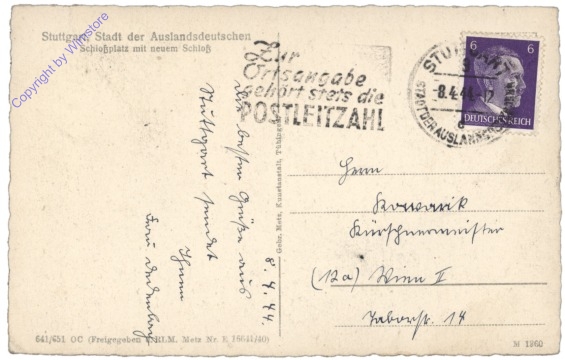 Copyright by Winstore
Stuttgart, Stadt der Auslandsdeutschen
Schloßplatz mit neuem Schloß
Zur
Ortsangabe
gehört stets die
POSTLEITZAHL
STUTTGART
9
-8.4.44
STADT DER AUSLANDSDEUTSCHEN
6 6
DEUTSCHES REICH
8. 4. 44.
die besten Grüße aus
Stuttgart sendet
Ihnen
Frau
Gebr. Metz, Kunstanstalt, Tübingen
Herrn
Kowarik
Kürschnermeister
(12a) Wien II
Taborstr. 14
641/651 OC (Freigegeben RLM. Metz Nr. E 16641/40)
M 1960